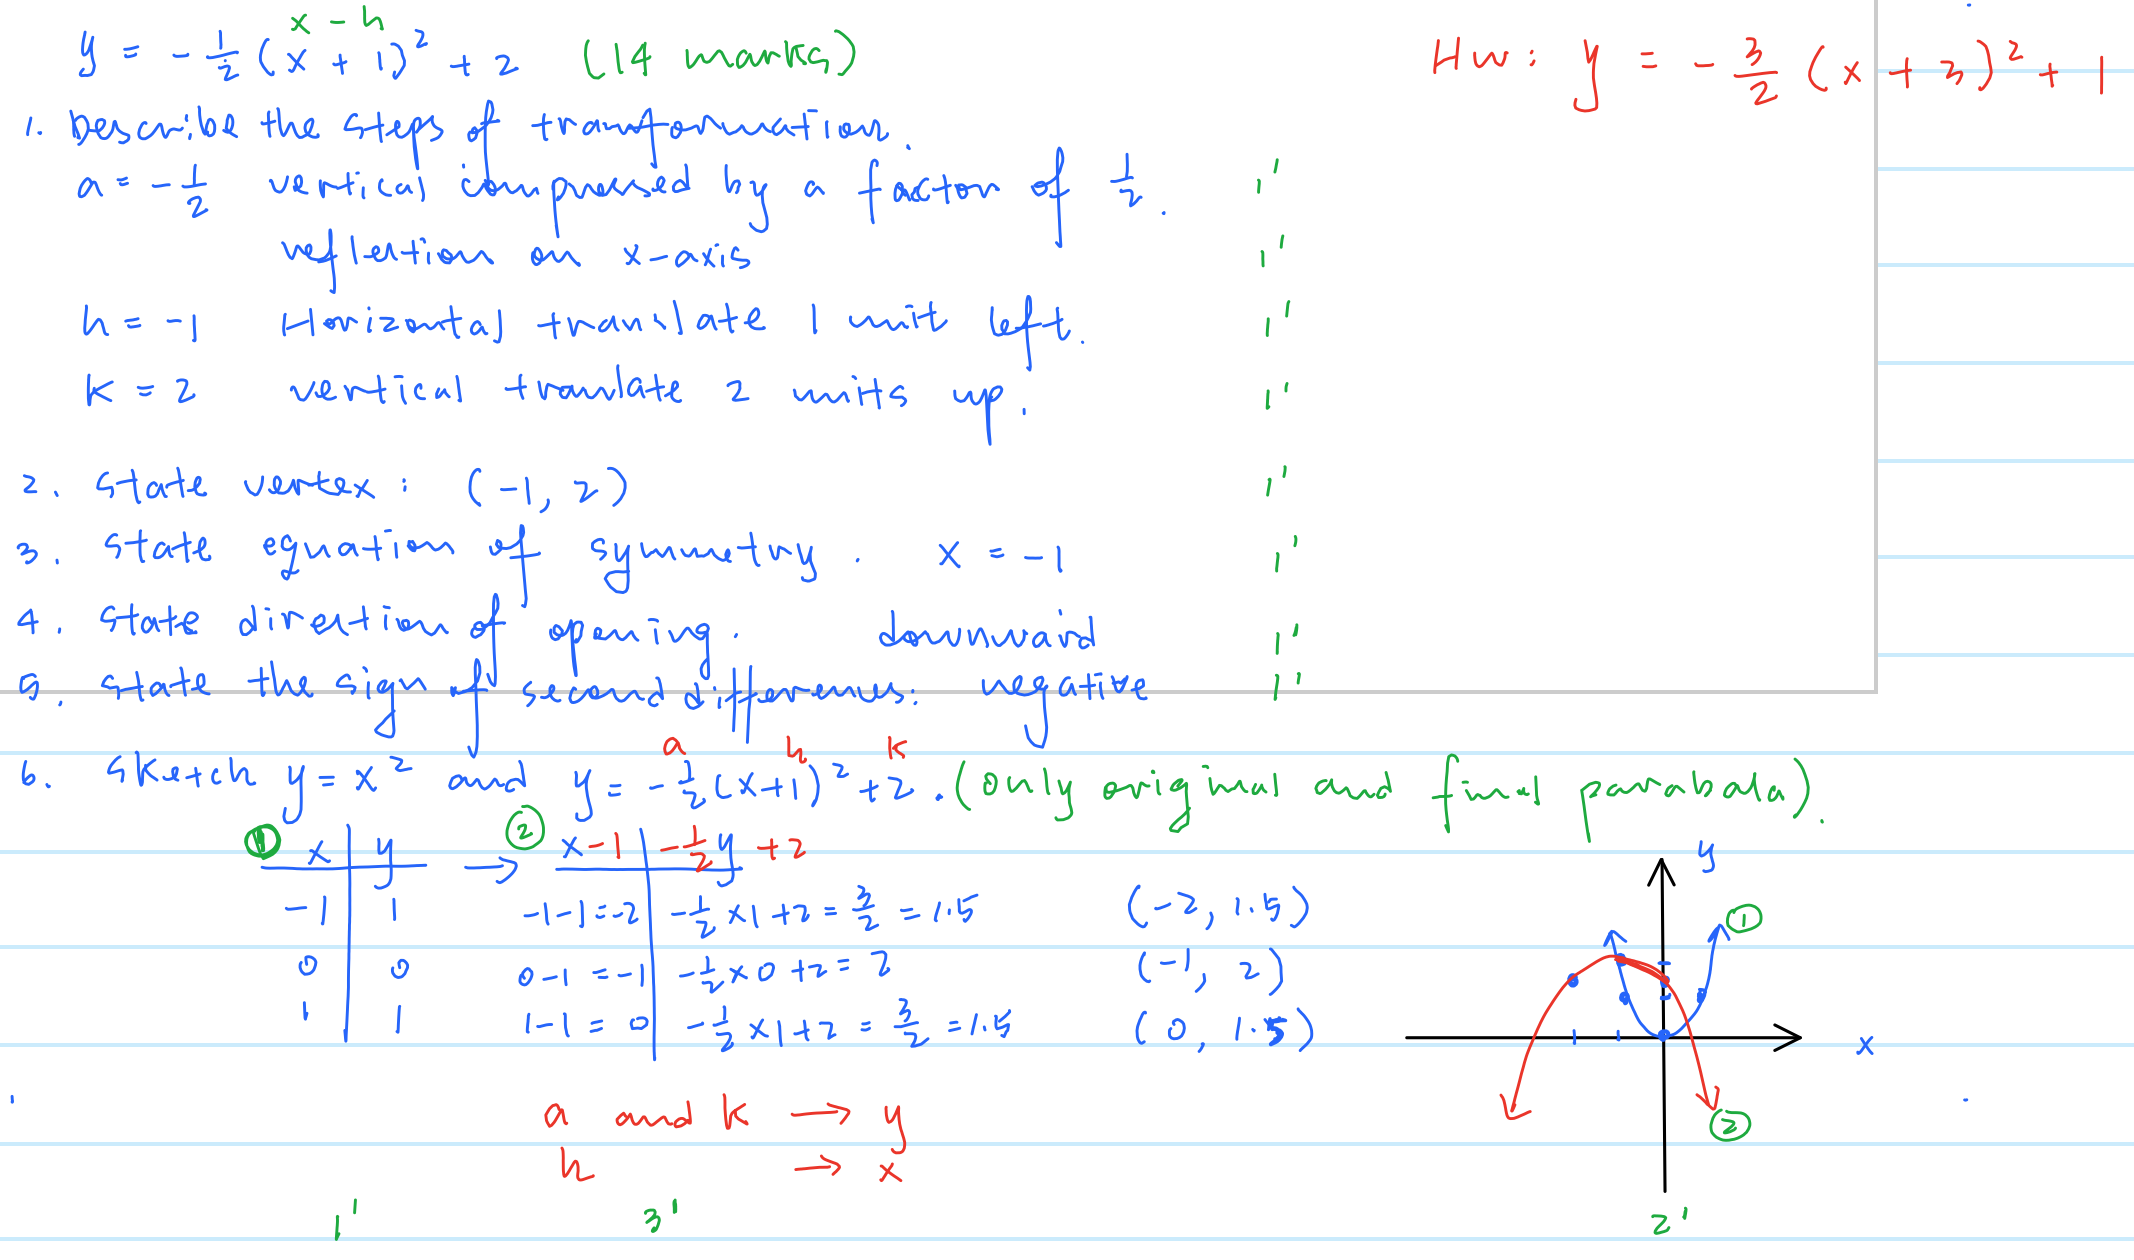 x - h
y = - 1/2 (x + 1)² + 2 (14 marks)
Hw: y = - 3/2 (x + 3)² + 1
1. Describe the steps of transformation.
a = - 1/2 vertical compressed by a factor of 1/2. 1'
reflection on x-axis 1'
h = -1 Horizontal translate 1 unit left. 1'
k = 2 vertical translate 2 units up. 1'
2. State vertex: (-1, 2) 1'
3. State equation of symmetry. x = -1 1'
4. State direction of opening. downward 1'
5. State the sign of second differences: negative 1'
a h k
6. Sketch y = x² and y = - 1/2 (x+1)² + 2. (only original and final parabola).
① x | y → ② x - 1 | - 1/2 y + 2
-1 | 1 -1-1=-2 | - 1/2 × 1 + 2 = 3/2 = 1.5 (-2, 1.5)
0 | 0 0-1=-1 | - 1/2 × 0 + 2 = 2 (-1, 2)
1 | 1 1-1=0 | - 1/2 × 1 + 2 = 3/2 = 1.5 (0, 1.5)
y
①
x
②
a and k → y
h → x
1' 3' 2'